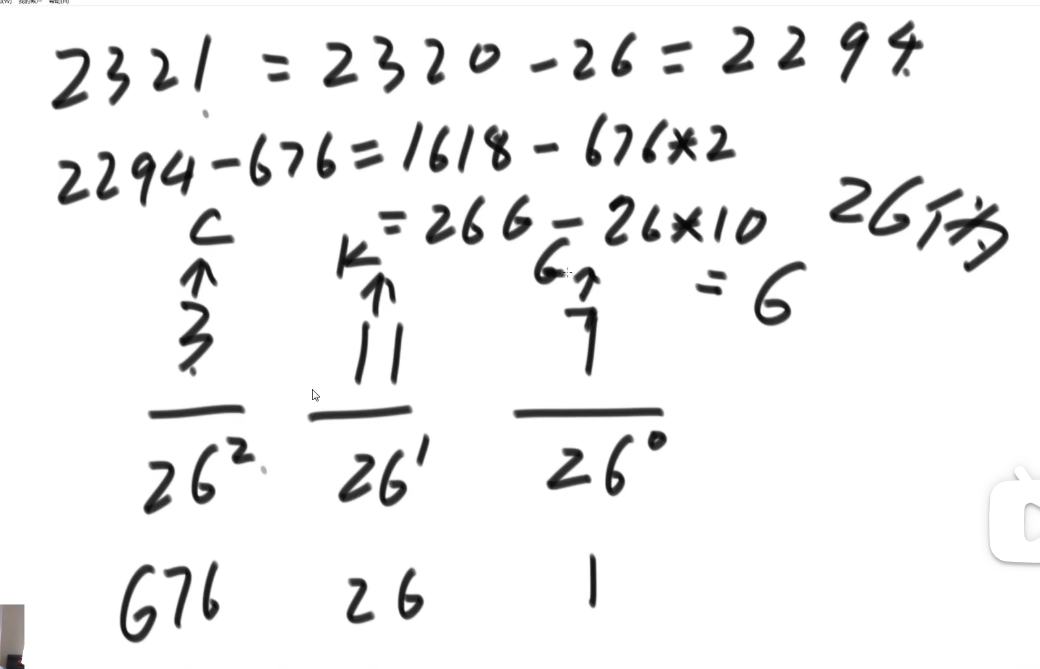 2321 = 2320 - 26 = 2294
2294 - 676 = 1618 - 676*2
= 266 - 26*10
= 6
C K G
↑ ↑ ↑
3 11 7
26² 26¹ 26⁰
676 26 1